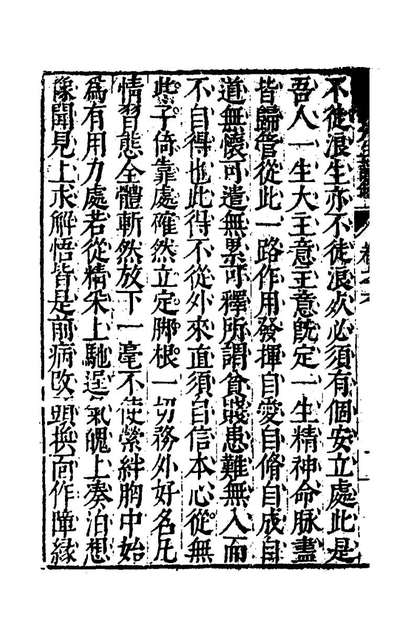 不徒浪生亦不徒浪死必須有個安立處此是
吾人一生大主意主意既定一生精神命脉盡
皆歸管從此一路作用發揮自愛自脩自成自
道無懷可遣無累可釋所謂貧賤患難無入而
不自得也此得不從外來直須自信本心從無
些子倚靠處確然立定脚根一切務外好名凡
情習態全體斬然放下一毫不使縈絆胸中始
爲有用力處若從精采上馳逞氣魄上湊泊想
像聞見上求解悟皆是前病改頭換面作障緣